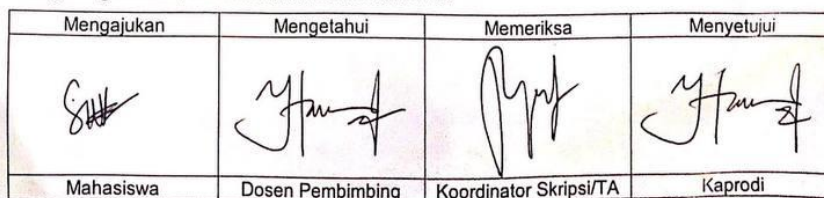 Mengajukan Mengetahui Memeriksa Menyetujui
Mahasiswa Dosen Pembimbing Koordinator Skripsi/TA Kaprodi